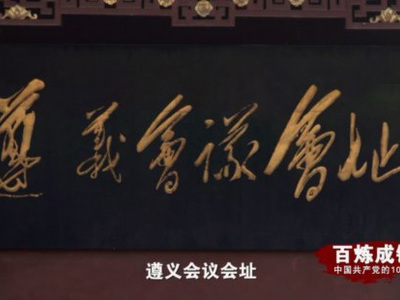 遵义會议會址
遵义会议会址
百炼成
中国共产党的10